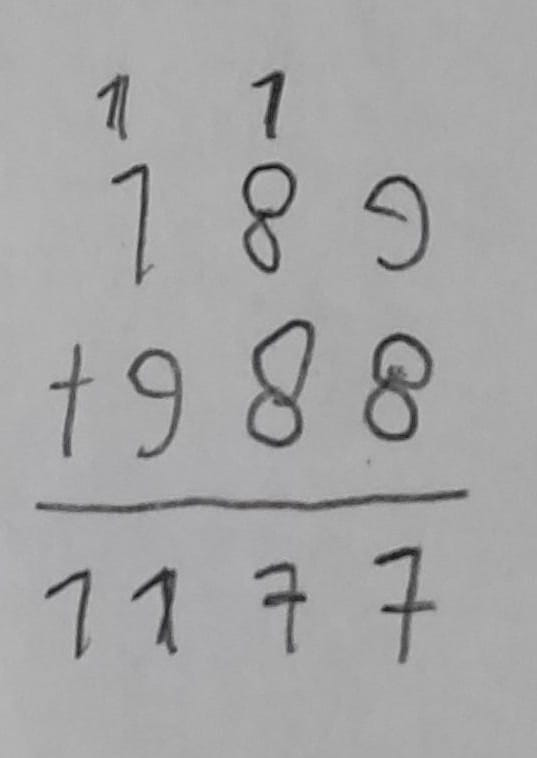 1 1
1 8 9
+ 9 8 8
1 1 7 7